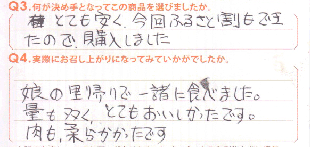 Q3.何が決め手となってこの商品を選びましたか。
とても安く、今回ふるさと割もでき
たので、購入しました
Q4.実際にお召し上がりになってみていかがでしたか。
娘の里帰りで一諸に食べました。
量も多く、とてもおいしかったです。
肉も、柔らかかったです